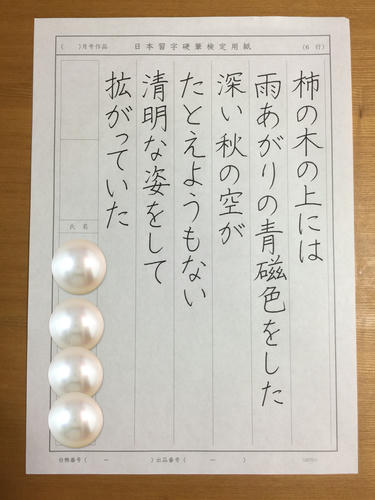 ( )月号作品 日本習字硬筆検定用紙 (6 行)
柿の木の上には
雨あがりの青磁色をした
深い秋の空が
たとえようもない
清明な姿をして
拡がっていた
氏名
自無番号 ( - ) 出品番号 ( - )